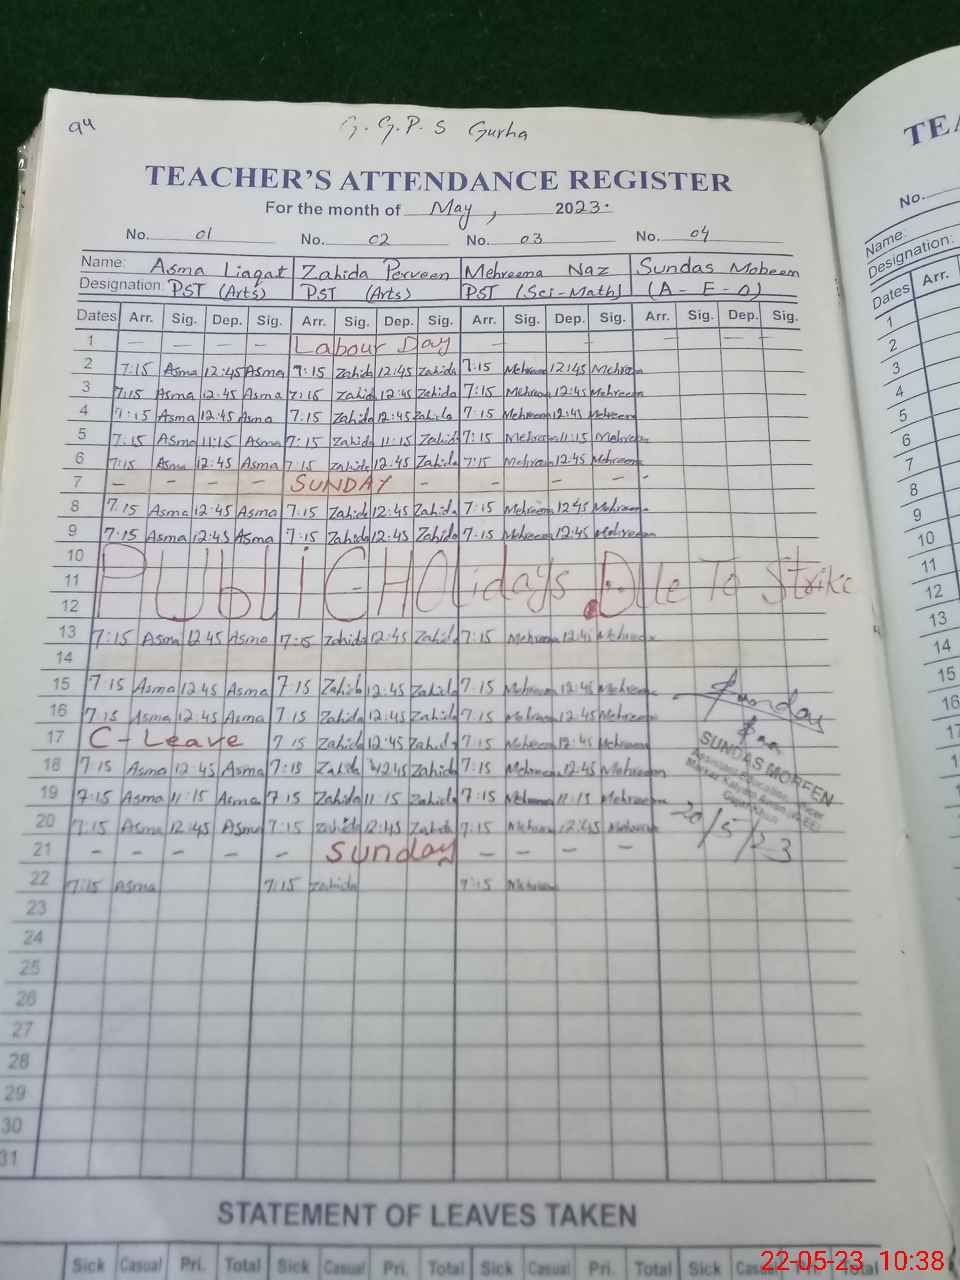 94
G. G. P. S Gurha
TEACHER'S ATTENDANCE REGISTER
For the month of May, 2023.
No. 01 No. 02 No. 03 No. 04
Name: Asma Liaqat Zahida Perveen Mehreema Naz Sundas Mobeen
Designation: PST (Arts) PST (Arts) PST (Sci-Math) (A-E-O)
Dates Arr. Sig. Dep. Sig. Arr. Sig. Dep. Sig. Arr. Sig. Dep. Sig. Arr. Sig. Dep. Sig.
1 — — — — Labour Day — - - -
2 7:15 Asma 12:45 Asma 7:15 Zahida 12:45 Zahida 7:15 Mehreem 12:45 Mehreem
3 7:15 Asma 12:45 Asma 7:15 Zahida 12:45 Zahida 7:15 Mehreem 12:45 Mehreem
4 7:15 Asma 12:45 Asma 7:15 Zahida 12:45 Zahida 7:15 Mehreem 12:45 Mehreem
5 7:15 Asma 11:15 Asma 7:15 Zahida 11:15 Zahida 7:15 Mehreem 11:15 Mehreem
6 7:15 Asma 12:45 Asma 7:15 Zahida 12:45 Zahida 7:15 Mehreem 12:45 Mehreem
7 - - - - SUNDAY - - - - -
8 7:15 Asma 12:45 Asma 7:15 Zahida 12:45 Zahida 7:15 Mehreem 12:45 Mehreem
9 7:15 Asma 12:45 Asma 7:15 Zahida 12:45 Zahida 7:15 Mehreem 12:45 Mehreem
10
11 PUbLiC HOlidays Due To Strike
12
13 7:15 Asma 12:45 Asma 7:15 Zahida 12:45 Zahida 7:15 Mehreem 12:45 Mehreem
14
15 7:15 Asma 12:45 Asma 7:15 Zahida 12:45 Zahida 7:15 Mehreem 12:45 Mehreem
16 7:15 Asma 12:45 Asma 7:15 Zahida 12:45 Zahida 7:15 Mehreem 12:45 Mehreem
17 C-Leave 7:15 Zahida 12:45 Zahida 7:15 Mehreem 12:45 Mehreem
SUNDAS MOREEN
18 7:15 Asma 12:45 Asma 7:15 Zahida 12:45 Zahida 7:15 Mehreem 12:45 Mehreem
19 7:15 Asma 11:15 Asma 7:15 Zahida 11:15 Zahida 7:15 Mehreem 11:15 Mehreem
20 7:15 Asma 12:45 Asma 7:15 Zahida 12:45 Zahida 7:15 Mehreem 12:45 Mehreem
20/5/23
21 - - - - - Sunday - - - -
22 7:15 Asma 7:15 Zahida 7:15 Mehreem
23
24
25
26
27
28
29
30
31
STATEMENT OF LEAVES TAKEN
Sick Casual Pri. Total Sick Casual Pri. Total Sick Casual Pri. Total Sick Casual Pri. Total
22-05-23 10:38
TEA
No.
Name:
Designation:
Dates Arr.
1
2
3
4
5
6
7
8
9
10
11
12
13
14
15
16
17